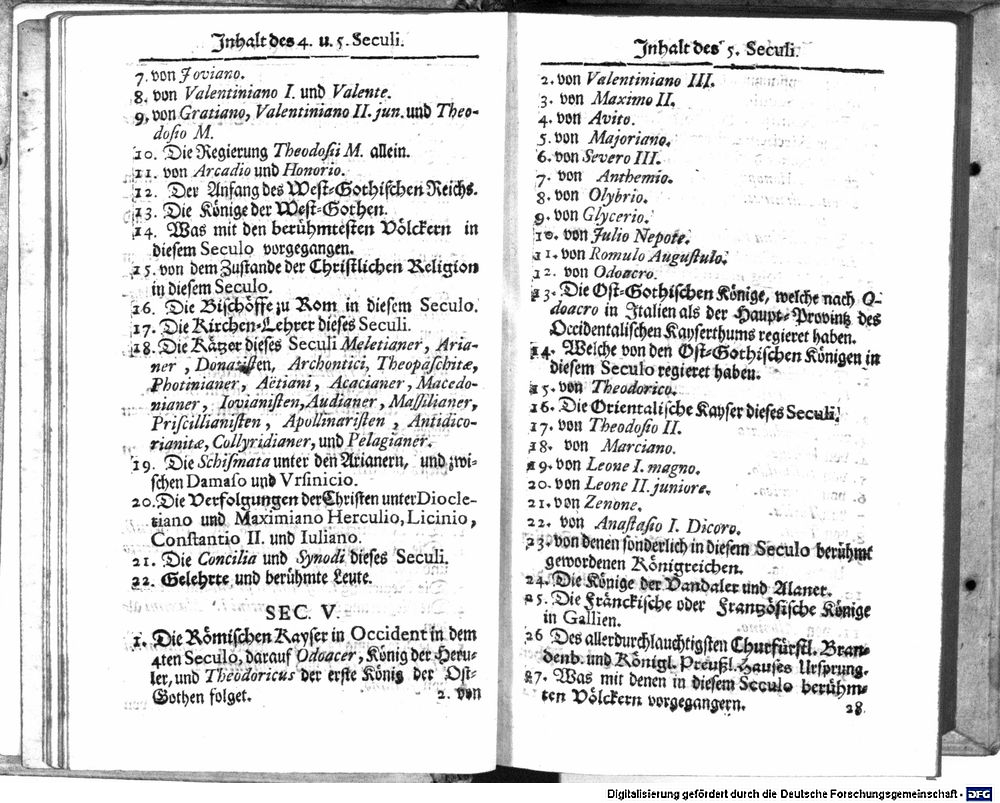 Inhalt des 4. u. 5. Seculi.
7. von Joviano.
8. von Valentiniano I. und Valente.
9. von Gratiano, Valentiniano II. jun. und Theo-
dosio M.
10. Die Regierung Theodosii M. allein.
11. von Arcadio und Honorio.
12. Der Anfang des West-Gothischen Reichs.
13. Die Könige der West-Gothen.
14. Was mit den berühmtesten Völckern in
diesem Seculo vorgegangen.
15. von dem Zustande der Christlichen Religion
in diesem Seculo.
16. Die Bischöffe zu Rom in diesem Seculo.
17. Die Kirchen-Lehrer dieses Seculi.
18. Die Kätzer dieses Seculi Meletianer, Aria-
ner, Donatisten, Archontici, Theopaschitæ,
Photinianer, Aëtiani, Acacianer, Macedo-
nianer, Iovianisten, Audianer, Massilianer,
Priscillianisten, Apollinaristen, Antidico-
rianitæ, Collyridianer, und Pelagianer.
19. Die Schismata unter den Arianern, und zwi-
schen Damaso und Vrsinicio.
20. Die Verfolgungen der Christen unter Diocle-
tiano und Maximiano Herculio, Licinio,
Constantio II. und Iuliano.
21. Die Concilia und Synodi dieses Seculi.
22. Gelehrte und berühmte Leute.
SEC. V.
1. Die Römischen Kayser in Occident in dem
4ten Seculo, darauf Odoacer, König der Heru-
ler, und Theodoricus der erste König der Ost-
Gothen folget.
2. von
Inhalt des 5. Seculi.
2. von Valentiniano III.
3. von Maximo II.
4. von Avito.
5. von Majoriano.
6. von Severo III.
7. von Anthemio.
8. von Olybrio.
9. von Glycerio.
10. von Julio Nepote.
11. von Romulo Augustulo.
12. von Odoacro.
13. Die Ost-Gothischen Könige, welche nach O-
doacro in Italien als der Haupt-Provintz des
Occidentalischen Kayserthums regieret haben.
14. Welche von den Ost-Gothischen Königen in
diesem Seculo regieret haben.
15. von Theodorico.
16. Die Orientalische Kayser dieses Seculi.
17. von Theodosio II.
18. von Marciano.
19. von Leone I. magno.
20. von Leone II. juniore.
21. von Zenone.
22. von Anastasio I. Dicoro.
23. von denen sonderlich in diesem Seculo berühmt
gewordenen Königreichen.
24. Die Könige der Vandaler und Alaner.
25. Die Fränckische oder Frantzösische Könige
in Gallien.
26 Des allerdurchlauchtigsten Churfürstl. Bran-
denb. und Königl. Preußl. Hauses Ursprung.
27. Was mit denen in diesem Seculo berühm-
ten Völckern vorgegangern.
28
Digitalisierung gefördert durch die Deutsche Forschungsgemeinschaft - DFG